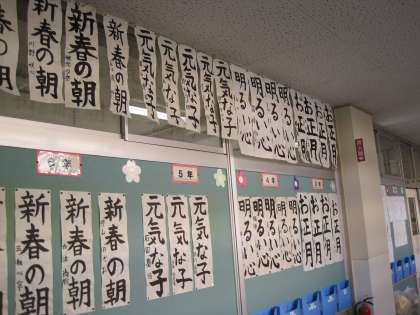 新春の朝
新春の朝
新春の朝
元気な子
元気な子
元気な子
元気な子
元気な子
明るい心
明るい心
明るい心
明るい心
お正月
お正月
お正月
お正月
6年
5年
4年
新春の朝
新春の朝
新春の朝
元気な子
元気な子
元気な子
明るい心
明るい心
明るい心
明るい心
お正月
お正月
お正月
お正月